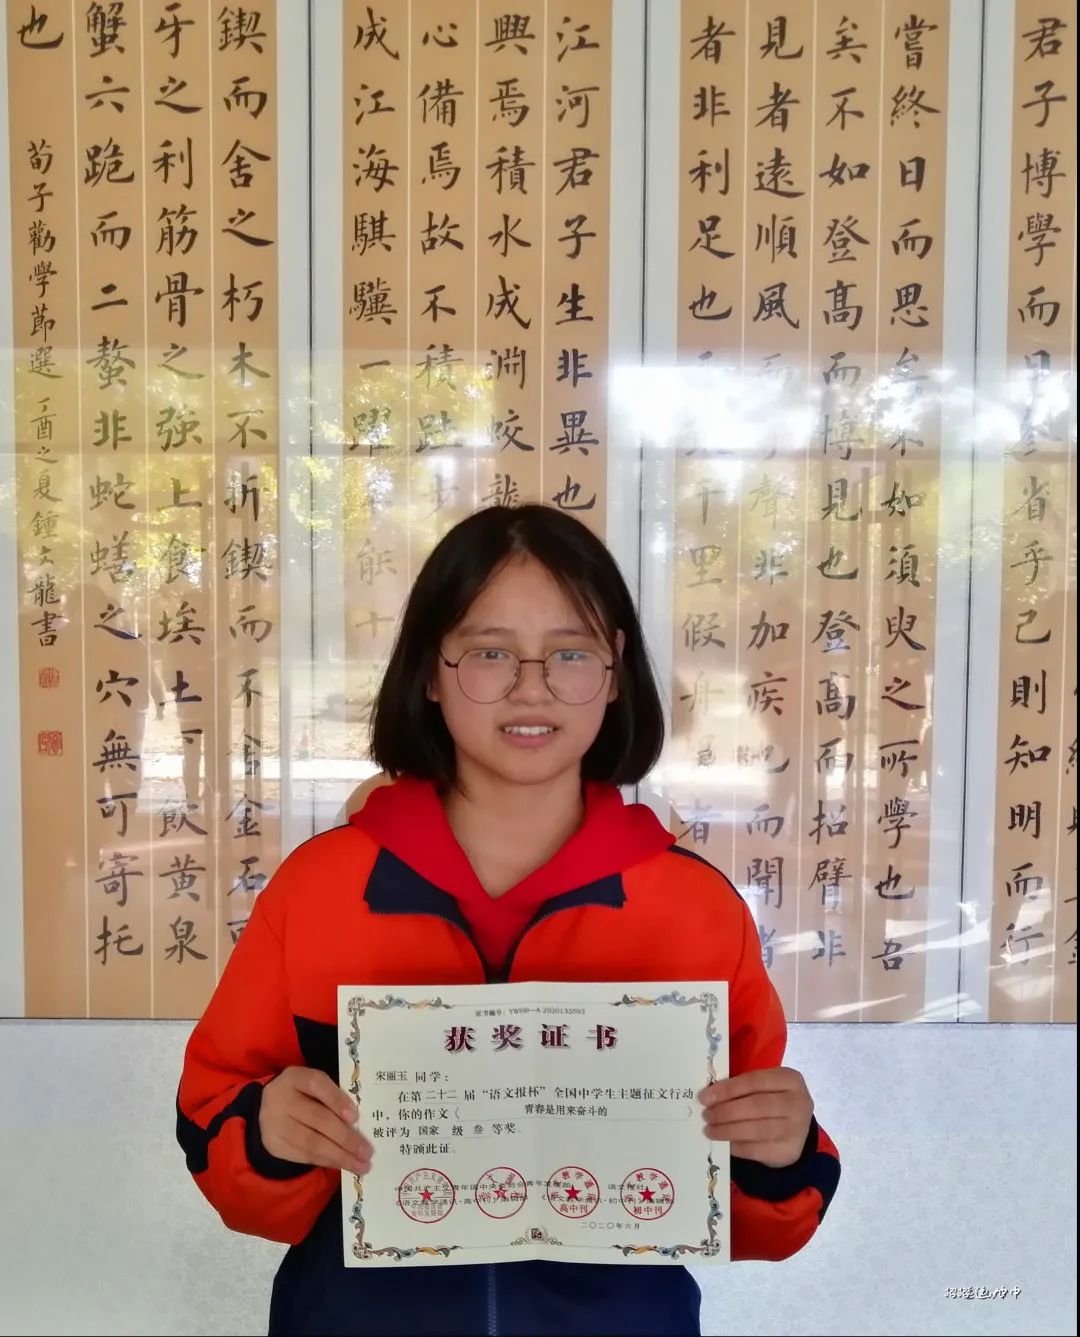 君子博學而日參省乎己則知明而行
嘗終日而思矣不如須臾之所學也吾
矣不如登高而博見也登高而招臂非
見者遠順風而聲非加疾也而聞者
者非利足也而千里假舟者
江河君子生非異也
興焉積水成淵蛟龍
心備焉故不積跬步
成江海騏驥一躍不能十
鍥而舍之朽木不折鍥而不舍金石可
牙之利筋骨之強上食埃土下飲黃泉
蟹六跪而二螯非蛇蟮之穴無可寄托
也
荀子勸學節選 丁酉之夏鍾文龍書
证书编号：YWBB—A 2020133593
获奖证书
宋丽玉 同学：
在第二十二届“语文报杯”全国中学生主题征文行动
中，你的作文《青春是用来奋斗的》
被评为 国家 级 叁 等奖。
特颁此证。
语文报社
高中刊
初中刊
二〇二〇年六月